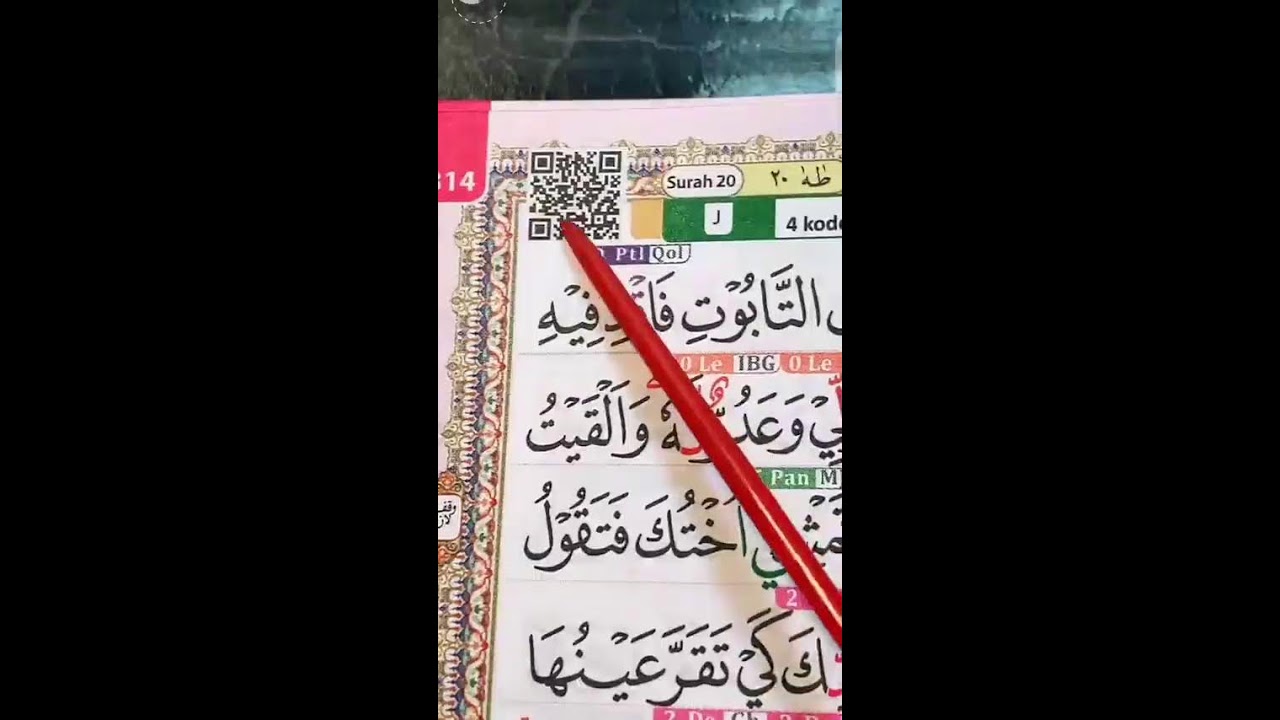 314
Surah 20
طٰهٰ ٢٠
J
4 kode
Ptl Qol
التَّابُوْتِ فَاقْذِفِيْهِ
0 Le IBG 0 Le
وَعَدُوٌّ لَّهٗ وَاَلْقَيْتُ
Pan M
اُخْتُكَ فَتَقُوْلُ
2
كَيْ تَقَرَّ عَيْنُهَا